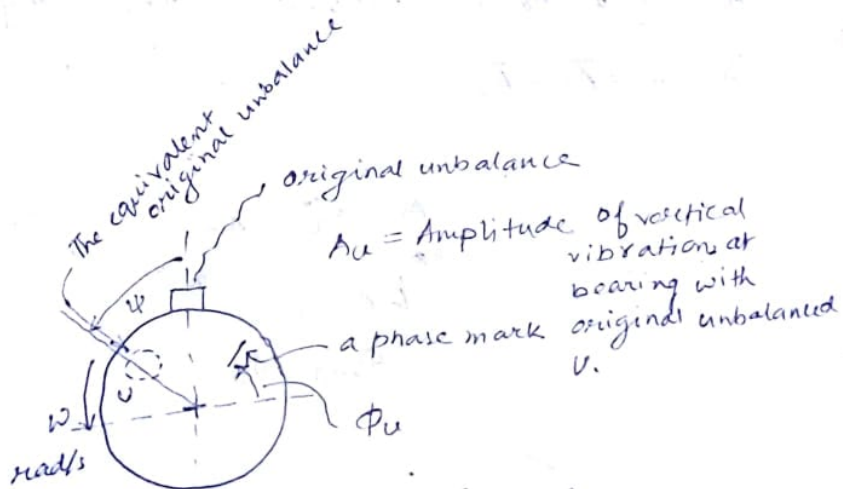 The equivalent
original unbalance
original unbalance
Au = Amplitude of vertical
vibration at
bearing with
a phase mark original unbalanced
U.
ψ
U
ω
rad/s
Φu